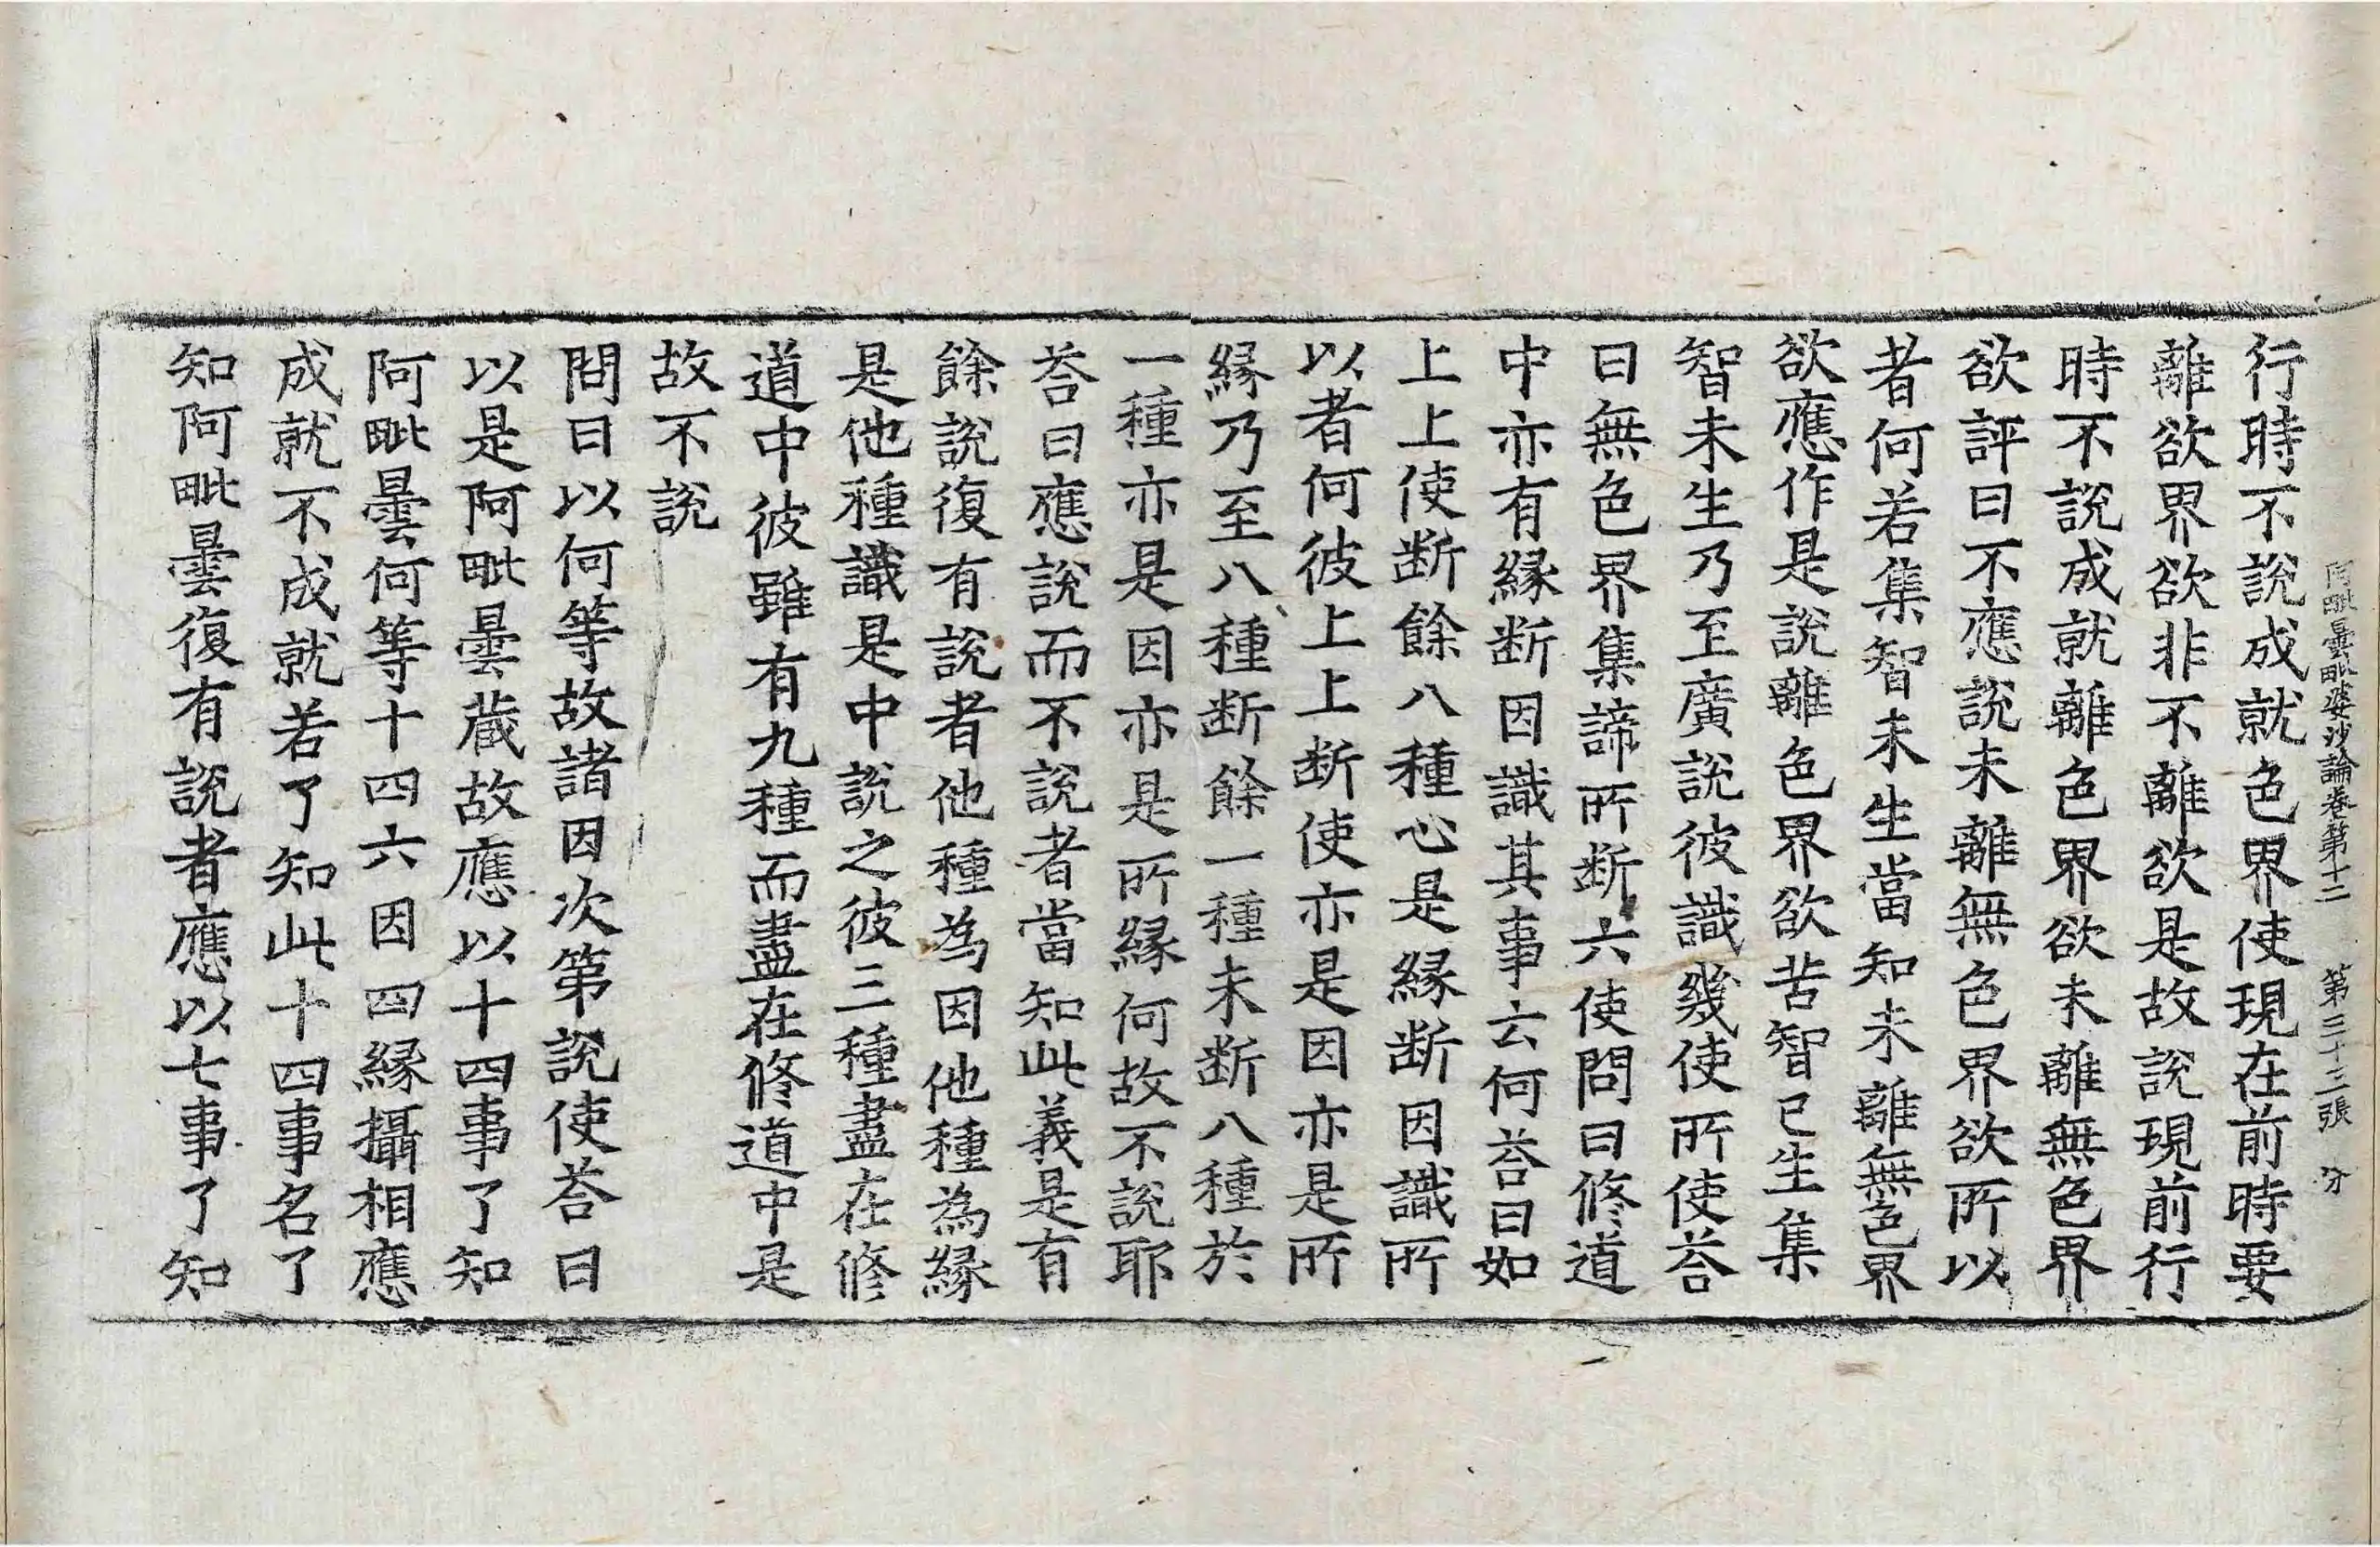 阿毗曇毗婆沙論卷第十二 第三十三張 分
行時不說成就色界使現在前時要
離欲界欲非不離欲是故說現前行
時不說成就離色界欲未離無色界
欲評曰不應說未離無色界欲所以
者何若集智未生當知未離無色界
欲應作是說離色界欲苦智已生集
智未生乃至廣說彼識幾使所使荅
曰無色界集諦所断六使問曰修道
中亦有緣断因識其事云何荅曰如
上上使断餘八種心是緣断因識所
以者何彼上上断使亦是因亦是所
緣乃至八種断餘一種未断八種於
一種亦是因亦是所緣何故不說耶
荅曰應說而不說者當知此義是有
餘說復有說者他種為因他種為緣
是他種識是中說之彼三種盡在修
道中彼雖有九種而盡在修道中是
故不說
問曰以何等故諸因次第說使荅曰
以是阿毗曇藏故應以十四事了知
阿毗曇何等十四六因四緣攝相應
成就不成就若了知此十四事名了
知阿毗曇復有說者應以七事了知